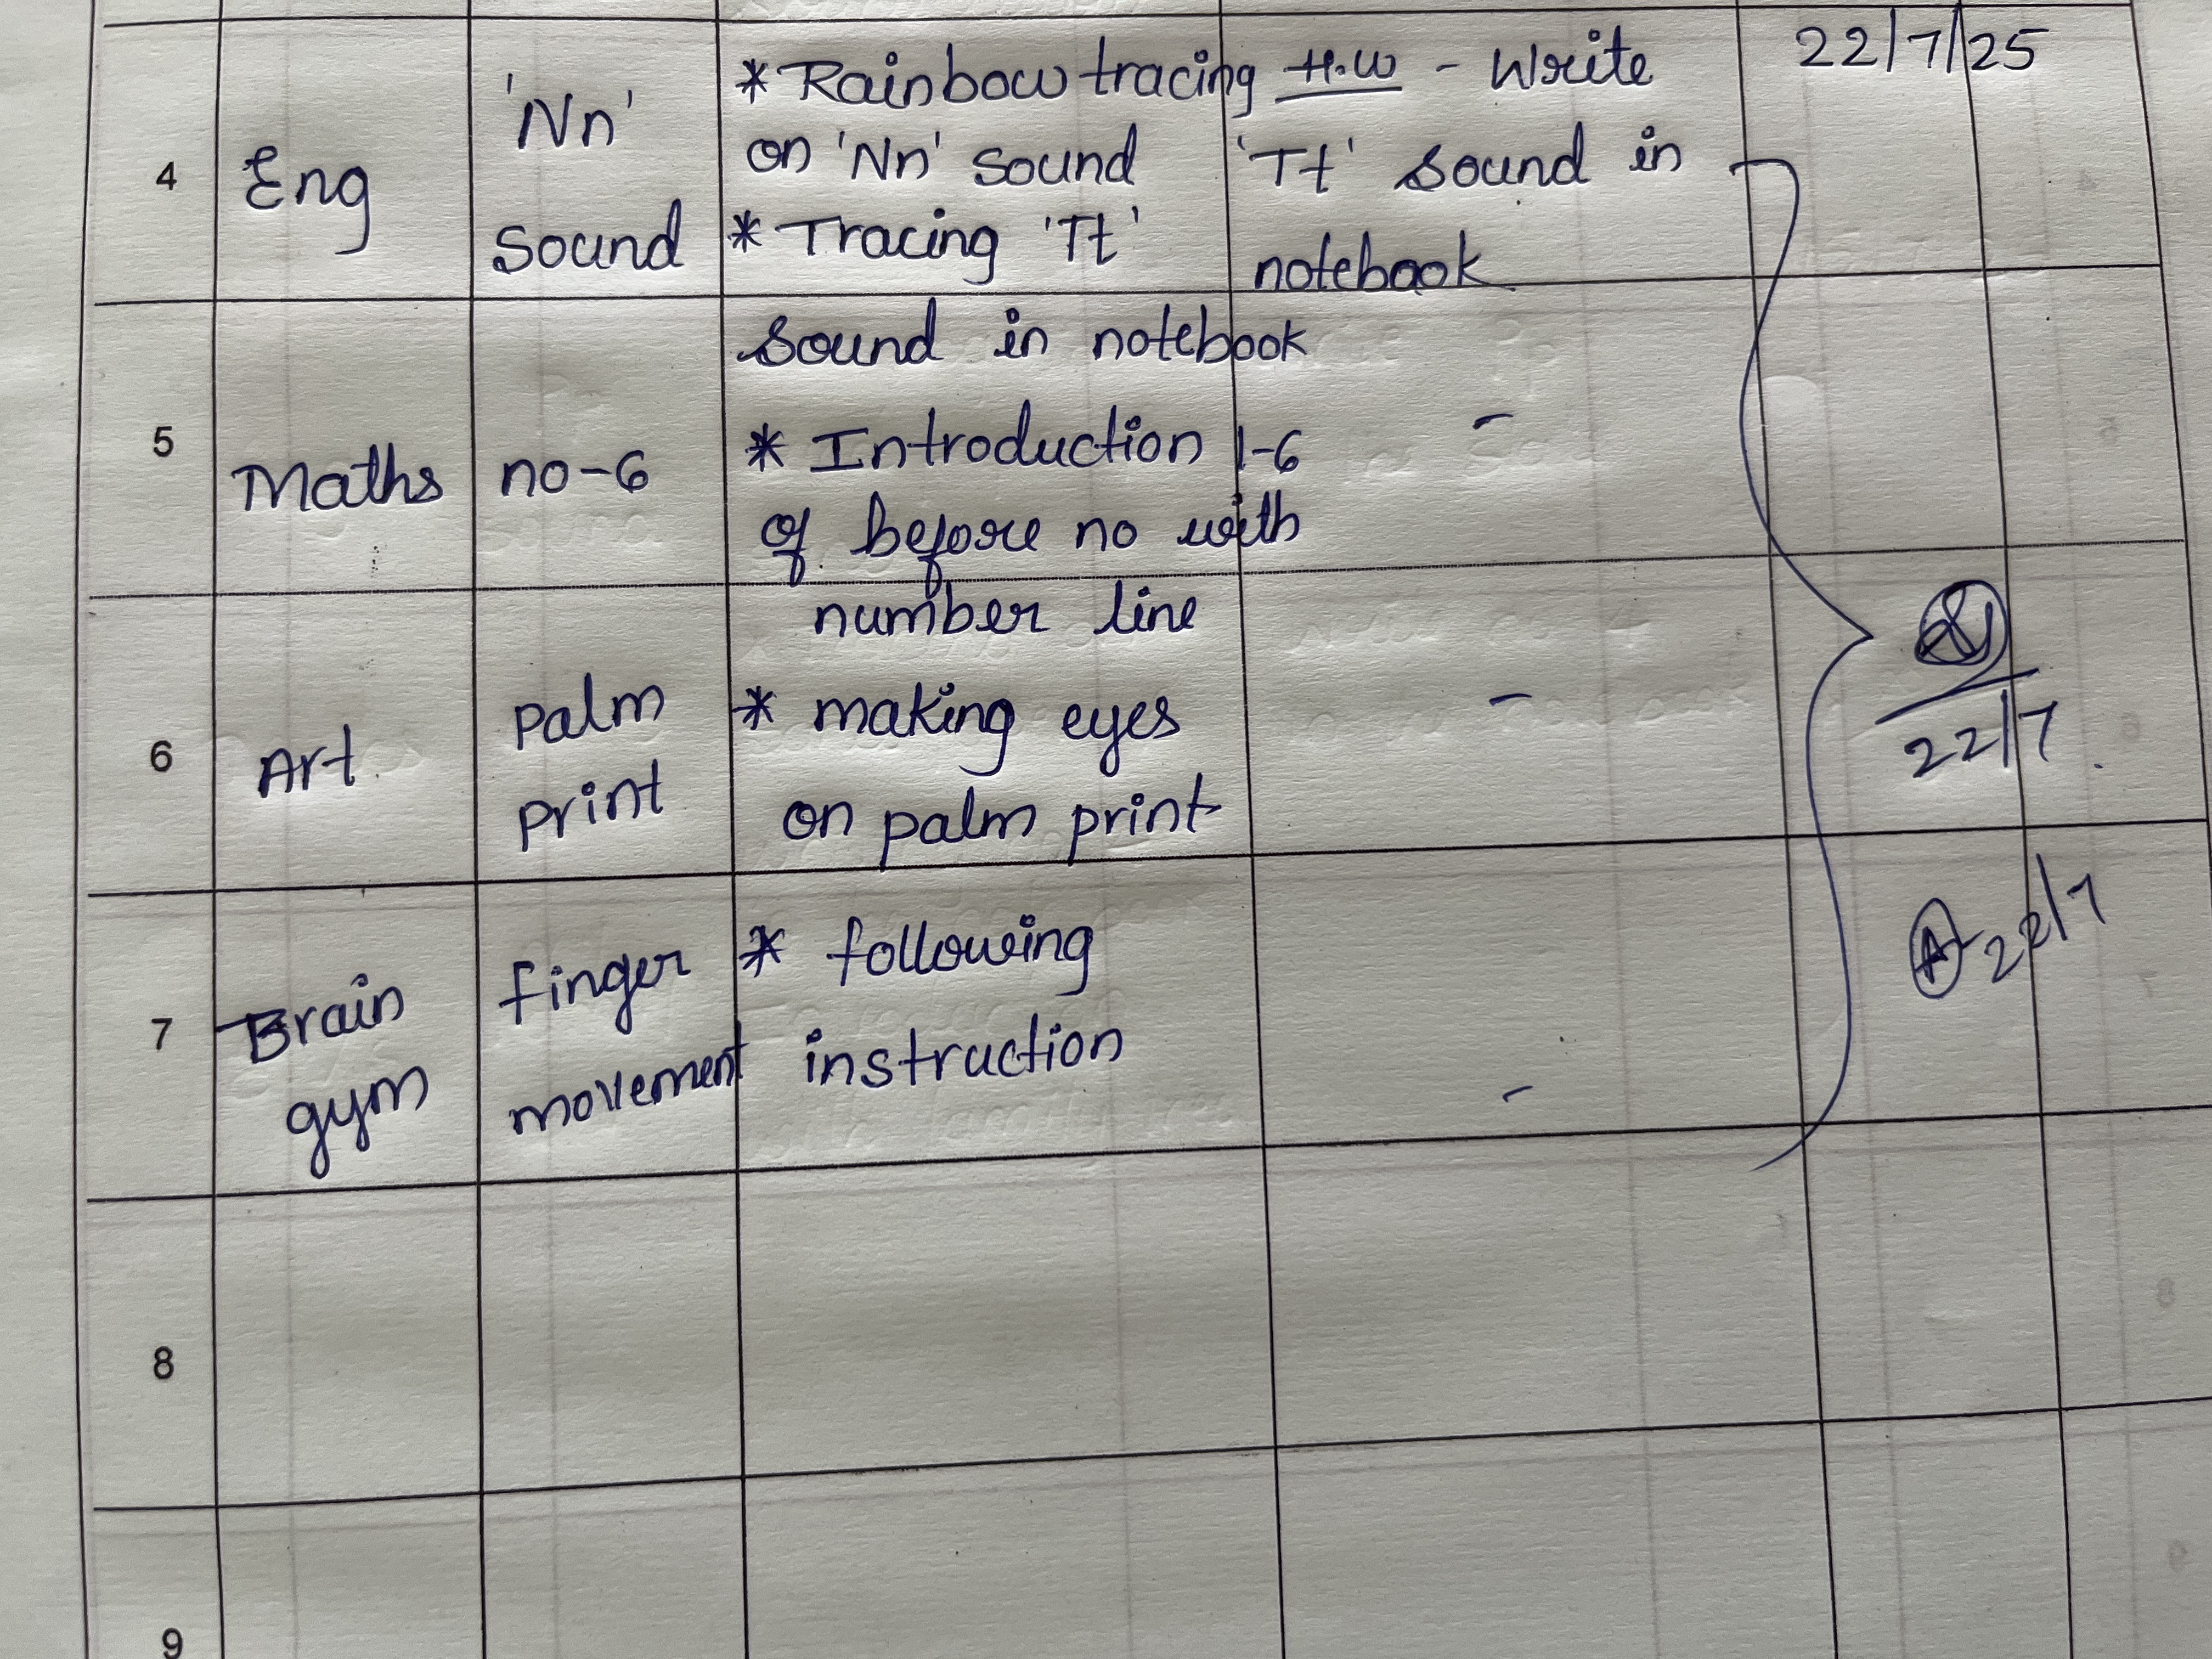 22/7/25
4 Eng 'Nn' Sound
* Rainbow tracing
on 'Nn' sound
* Tracing 'Tt'
sound in notebook
H.W - Write
'Tt' sound in
notebook
5 Maths no-6
* Introduction 1-6
of before no with
number line
-
6 Art palm print
* making eyes
on palm print
-
22/7
7 Brain gym finger movement
* following
instruction
-
22/7
8
9